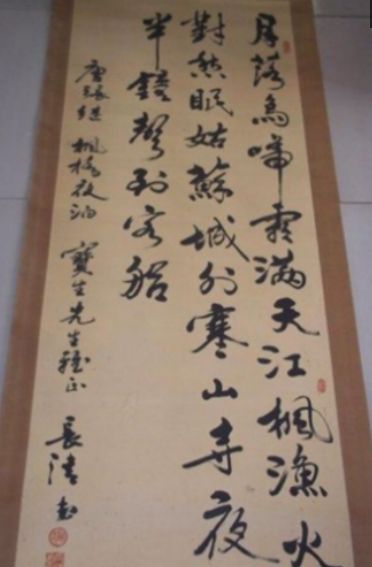 月落烏啼霜滿天江楓漁火
對愁眠姑蘇城外寒山寺夜
半鐘聲到客船
唐張繼 楓橋夜泊 寶生先生雅正
長清書